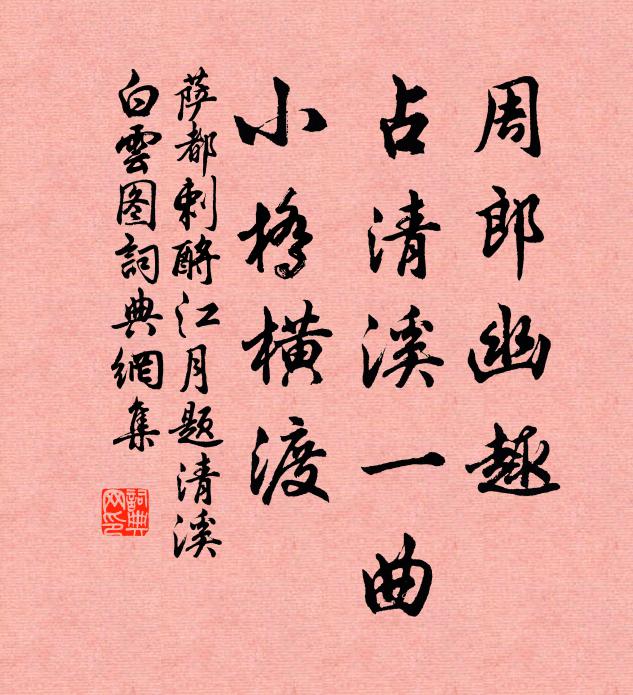 周郎幽趣
占清溪一曲
小橋横渡
萨都剌酹江月题清溪
白雲图詞典網集
詞典网印